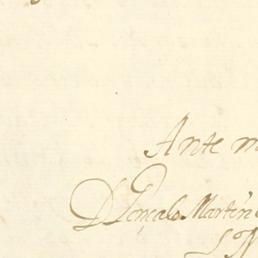 Ante m
D Gonçalo Martin